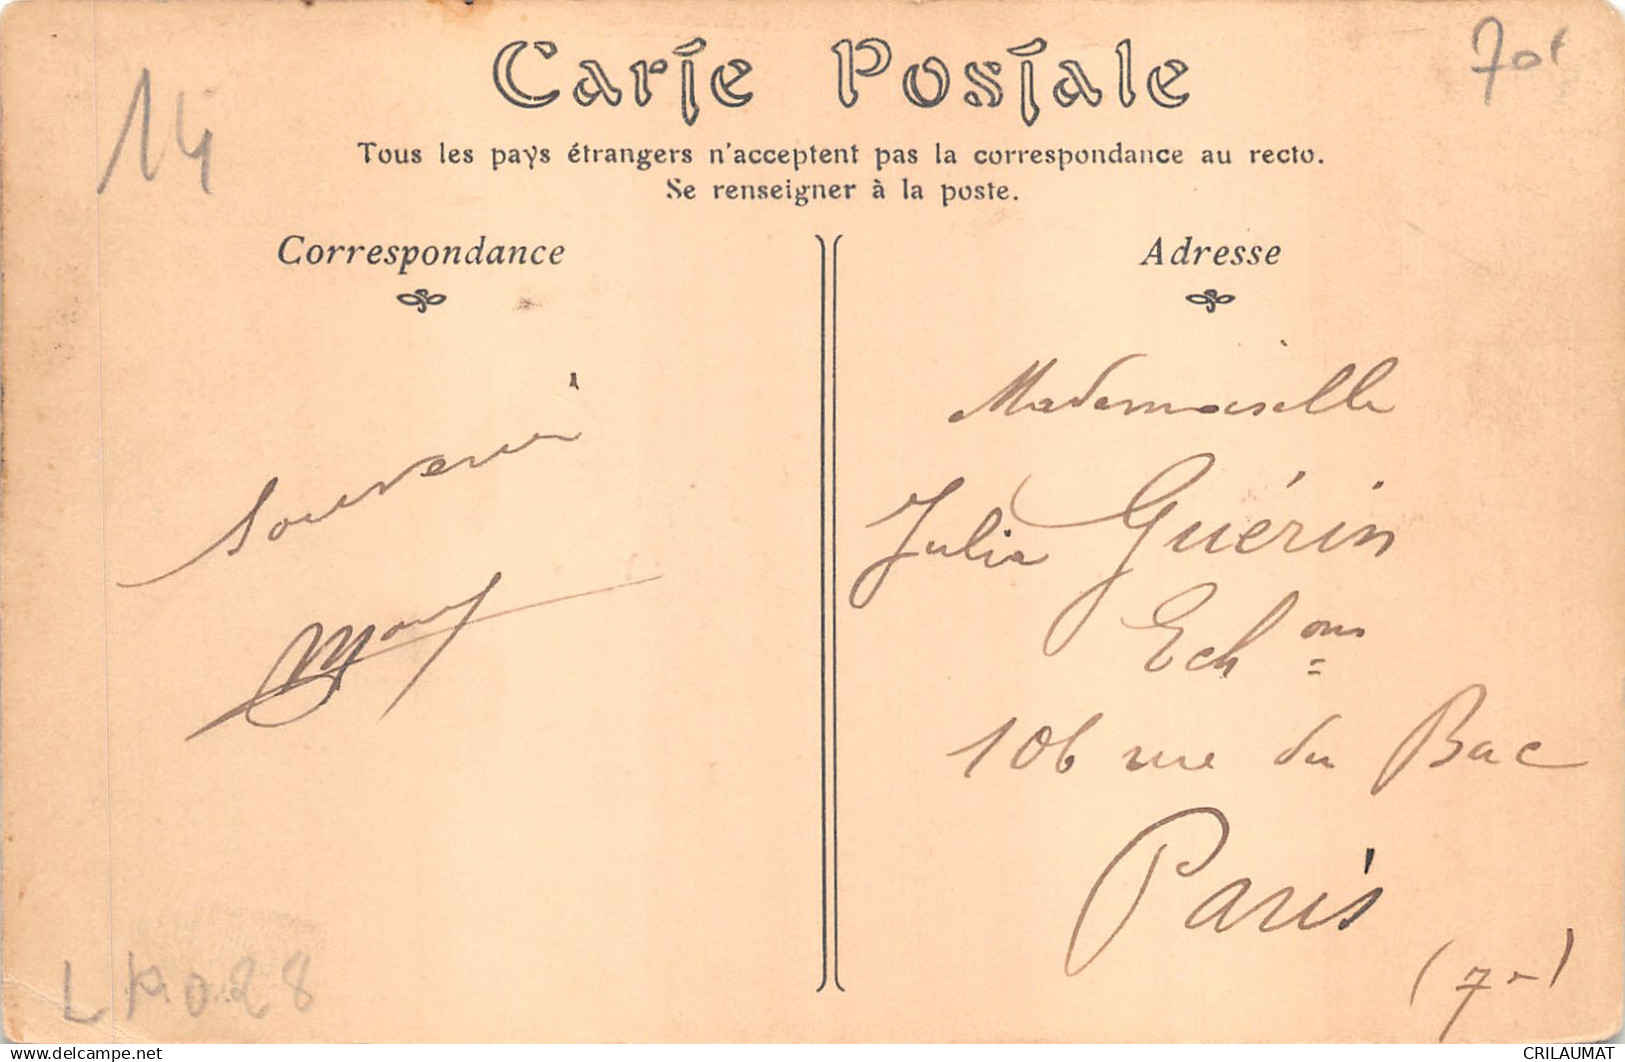 14
Carte Postale
Tous les pays étrangers n'acceptent pas la correspondance au recto.
Se renseigner à la poste.
Correspondance
Souvenir
Adresse
Mademoiselle
Julia Guérin
Ech ons
106 rue du Bac
Paris
(7e)
028
CRILAUMAT